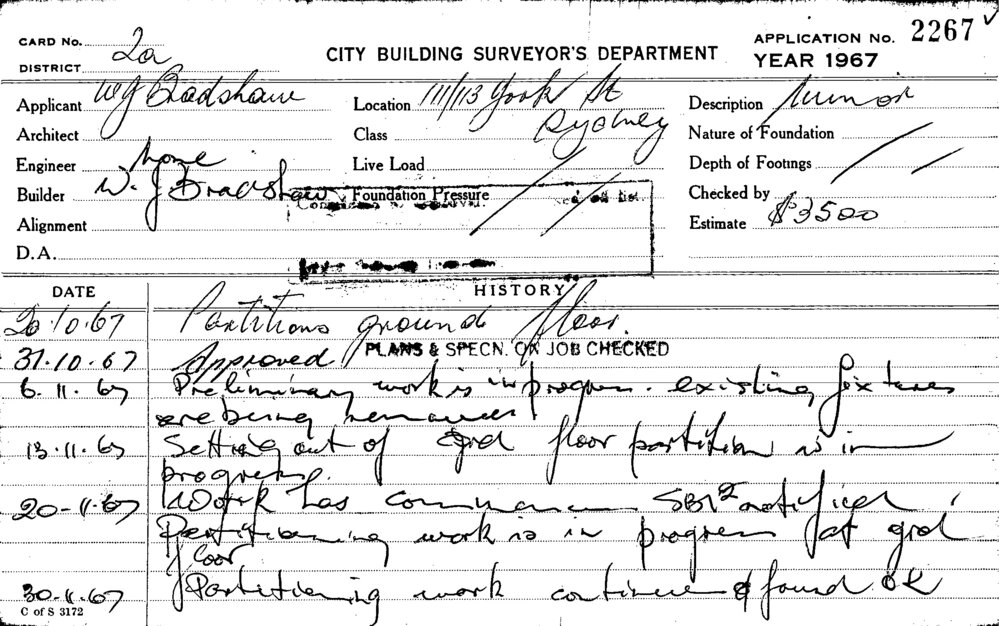 CARD No. 2a
DISTRICT
CITY BUILDING SURVEYOR'S DEPARTMENT
APPLICATION No. 2267
YEAR 1967
Applicant WJ Bradshaw
Location 111/113 York St Sydney
Description Minor
Architect
Class
Nature of Foundation
Engineer None
Live Load
Depth of Footings
Builder W. J Bradshaw
Foundation Pressure
Checked by
Alignment
Estimate $3500
D.A.
DATE
HISTORY
20.10.67 Partitions ground floor.
31.10.67 Approved PLANS & SPECN. ON JOB CHECKED
6.11.67 Preliminary work is in progress. existing fixtures
are being removed
13.11.67 Setting out of grd floor partition is in
progress.
20-11-67 Work has commenced notified
Partitioning work is in progress at grd
floor
30-11-67 Partitioning work continues & found OK
C of S 3172